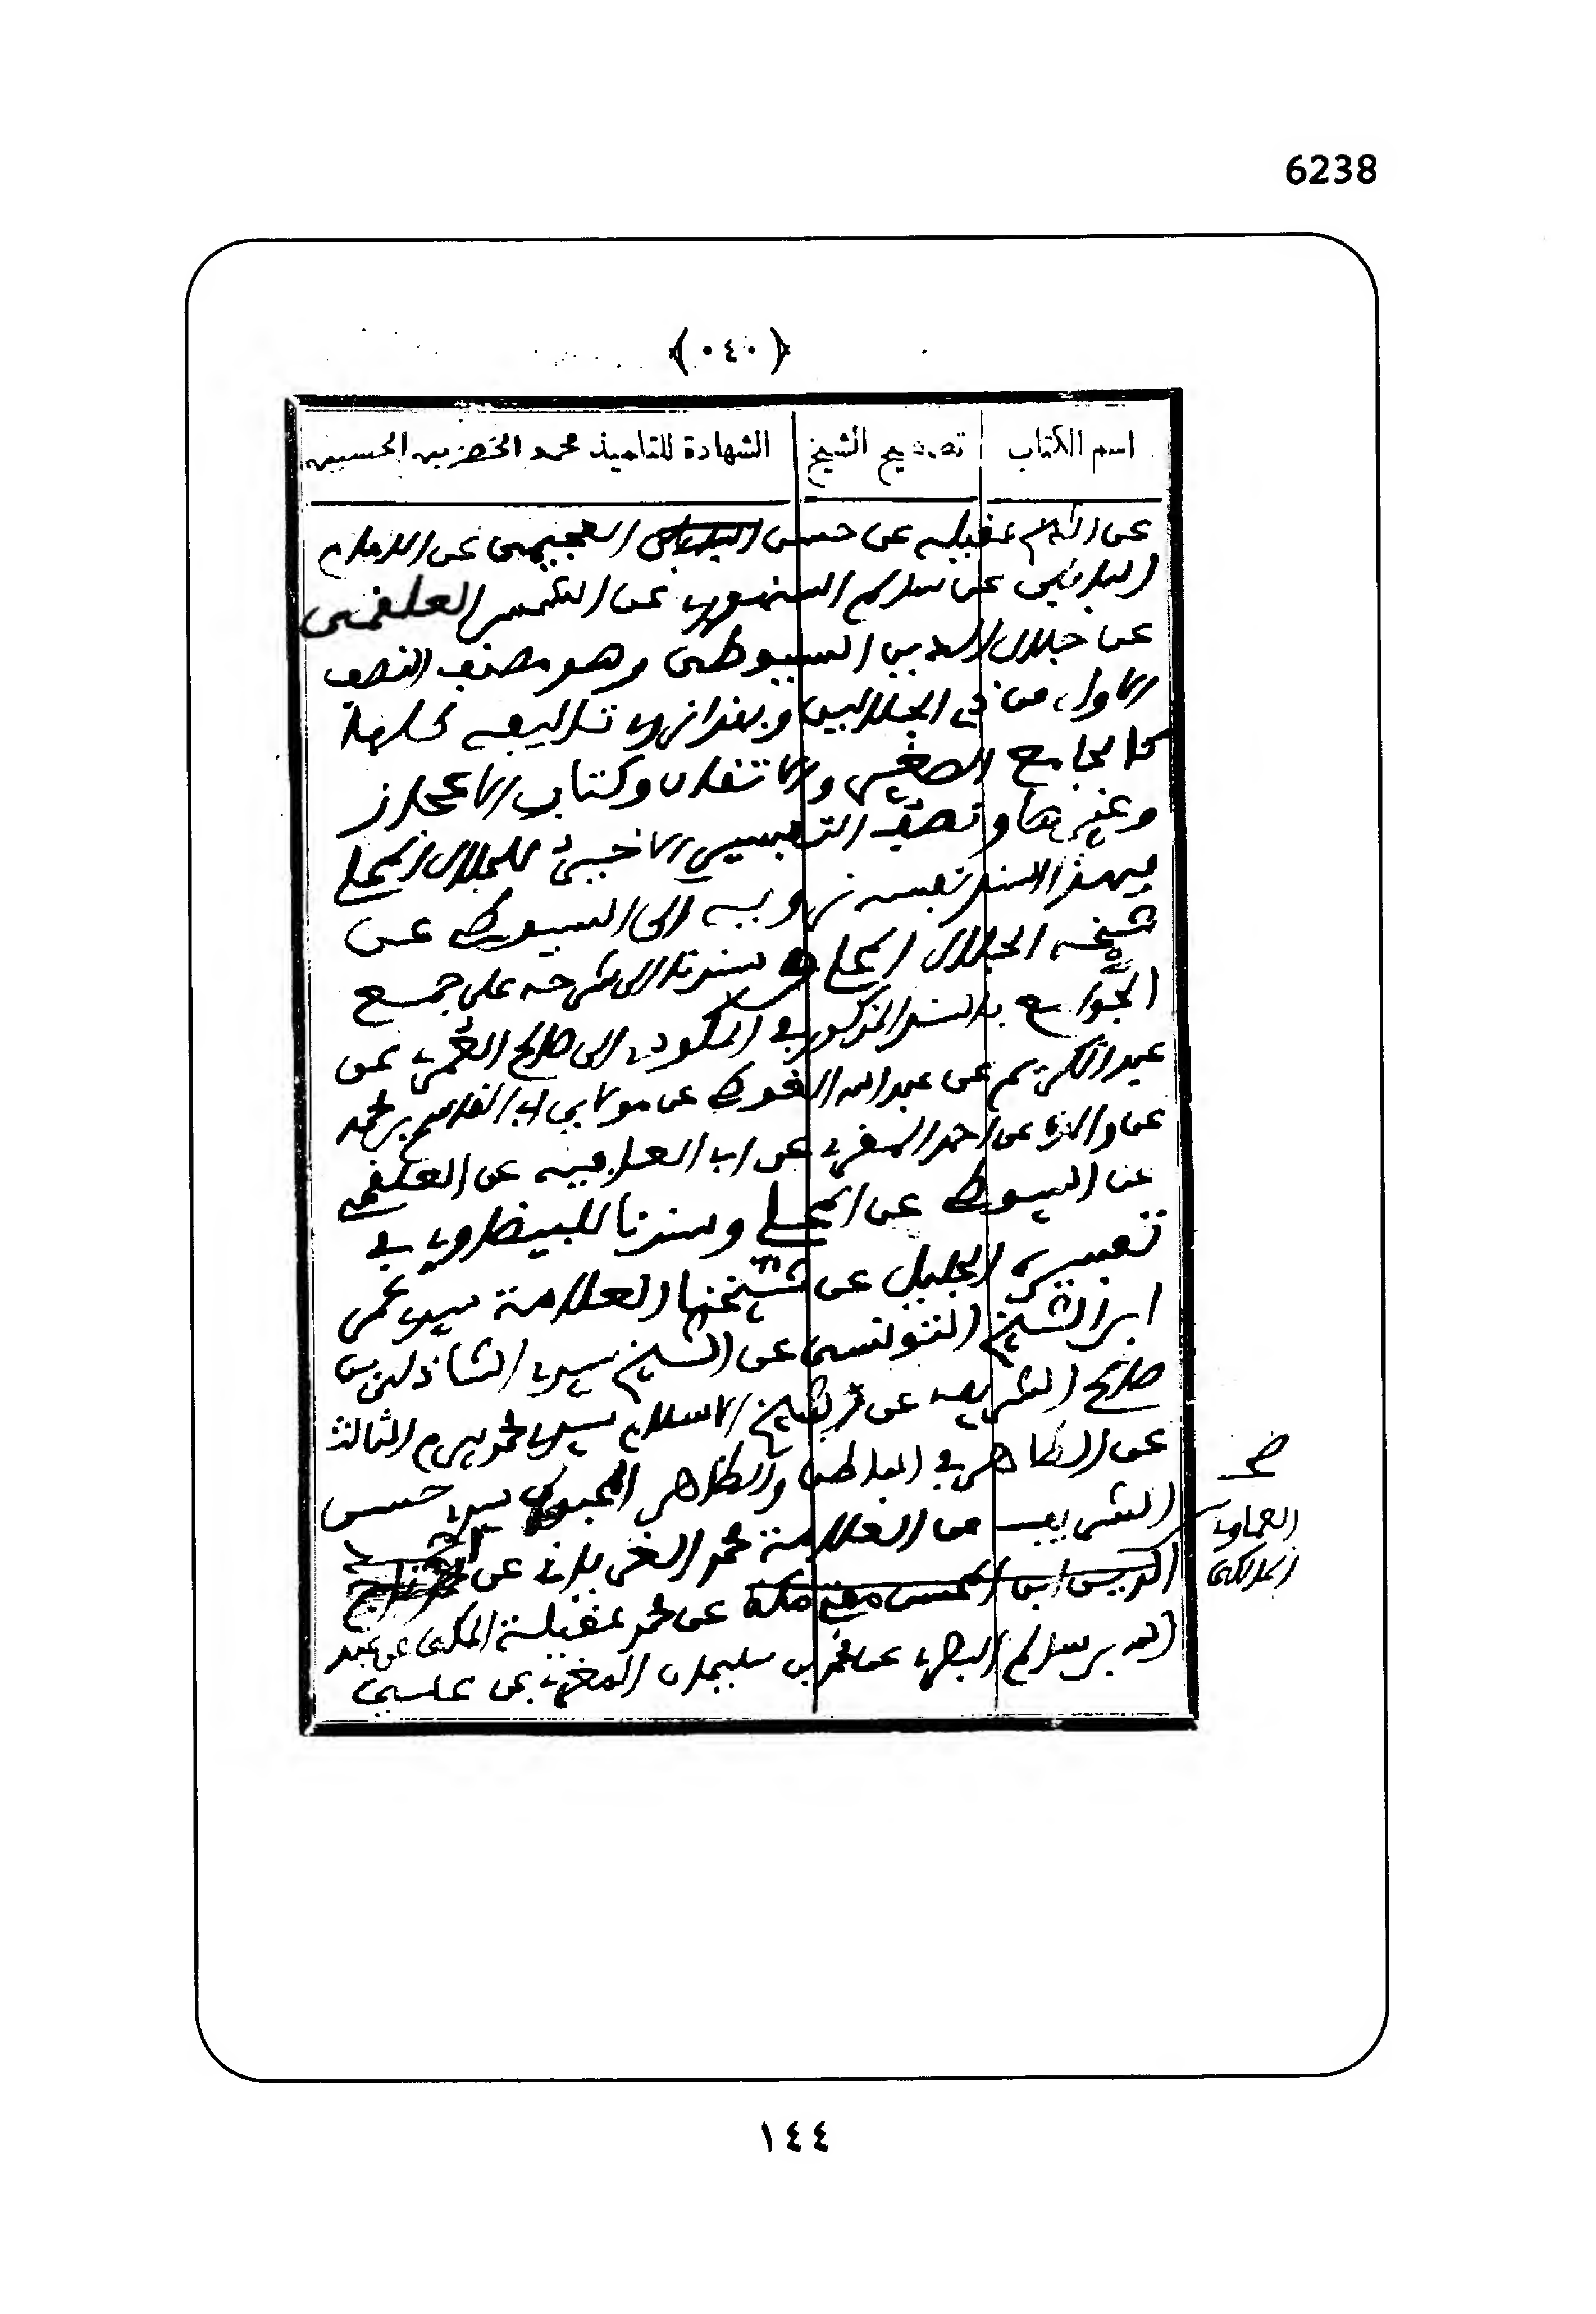 6238
(٠٤٠)
اسم الكتاب تصحيح الشيخ الشهادة للتلميذ محمد الخضر بن الحسين
عن الشام عقيلة عن حسن العجيمي عن الامام
البابلي عن سالم السنهوري عن الشمس العلقمي
عن جلال الدين السيوطي وهو مصنف النصف
الاول من في الجلالين وبهذا نروي تآليفه كلها
كالجامع الصغير والاتقان وكتاب الاعجاز
وغيرها ونصف التفسير الاخير للجلال المحلي
بهذا السند نفسه نرويه الى السيوطي عن
شيخه الجلال المحلي وسندنا الى شرحه على جمع
الجوامع بالسند المذكور في المكودي الى صالح العمري عن
عبد الكريم عن عبد الله عن مولاي ابي القاسم بن محمد
عن والده عن احمد المقري عن ابي العافية عن العلقمي
عن السيوطي عن المحلي وسندنا للبيضاوي في
تفسيره الجليل عن شيخنا العلامة سيدي عمر
ابن الشيخ التونسي عن الشيخ سيدي الشاذلي بن
صالح الشريف عن شيخ الاسلام سيدي محمد بيرم الثالث
عن الطاهر في الباطن والظاهر المحجوب سيدي حسن
الشريف عن العلامة محمد الغرياني عن
ادريس ابن مفتي مكة عن محمد عقيلة المكي عن عبد
الله بن سالم البصري عن محمد بن سليمان المغربي عن علي
صح
العماوي
المالكي
١٤٤